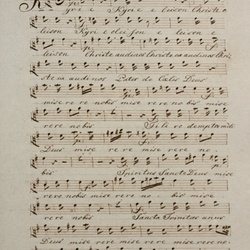 Kyrie eleison Christe e
leison Kyrie eleison e leison e
leison Christe audi nos Christe exaudi nos Christe
exaudi nos Pater de Caelis Deus
miserere nobis miserere nobis mise rere
rere nobis Fili redemptor mundi
Deus miserere miserere no
bis Spiritus Sancte Deus mise
rere miserere miserere nobis mise
rere nobis Sancta Trinitas unus
Deus miserere miserere miserere no